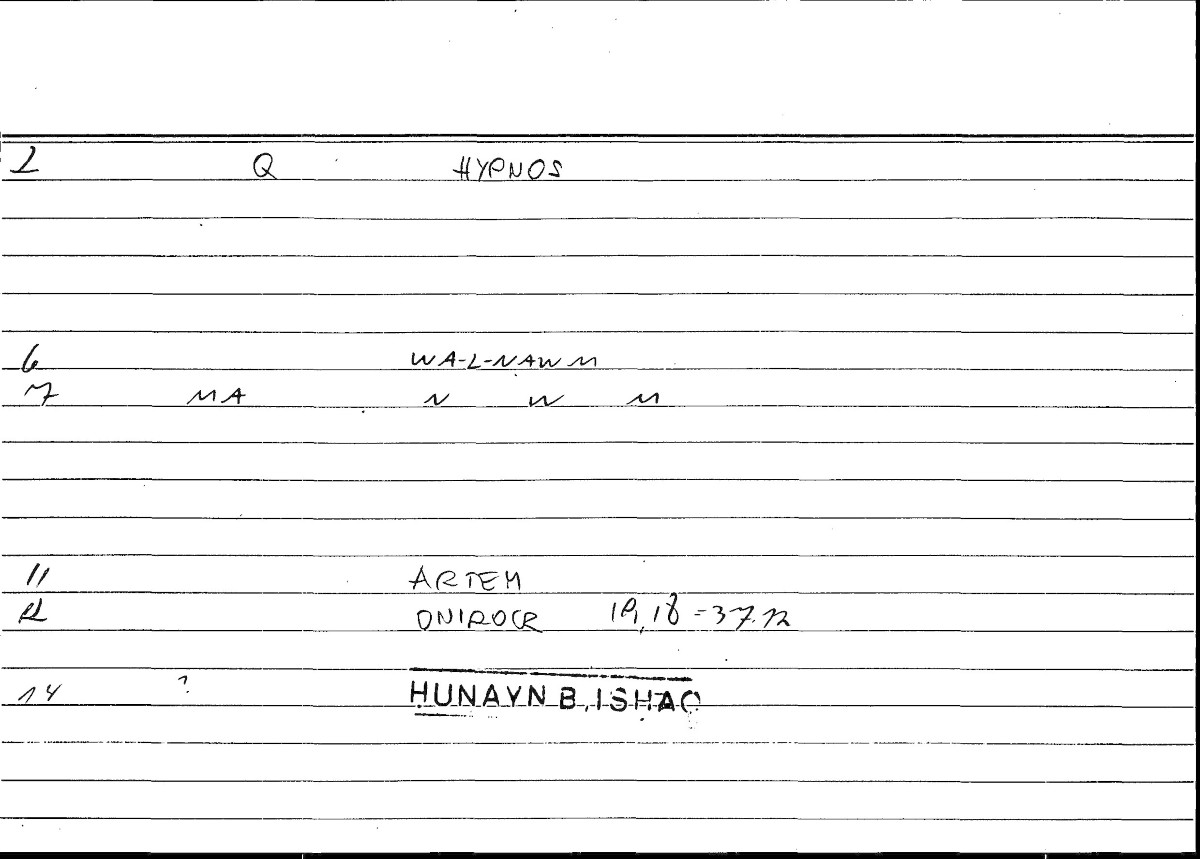 2 Q HYPNOS
6 WA-L-NAWM
7 MA N W M
11 ARTEM
12 ONIROCR 19,18 = 37.12
14 ? HUNAYN B. ISHAQ